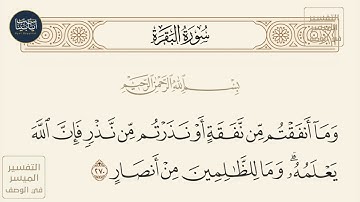 سُورَةُ البَقَرَةِ
بِسْمِ اللَّهِ الرَّحْمَٰنِ الرَّحِيمِ
وَمَآ أَنفَقْتُم مِّن نَّفَقَةٍ أَوْ نَذَرْتُم مِّن نَّذْرٍ فَإِنَّ ٱللَّهَ
يَعْلَمُهُۥۗ وَمَا لِلظَّٰلِمِينَ مِنْ أَنصَارٍ ٢٧٠
التفسير
الميسر
في الوصف
التفسير
الميسر
في الوصف